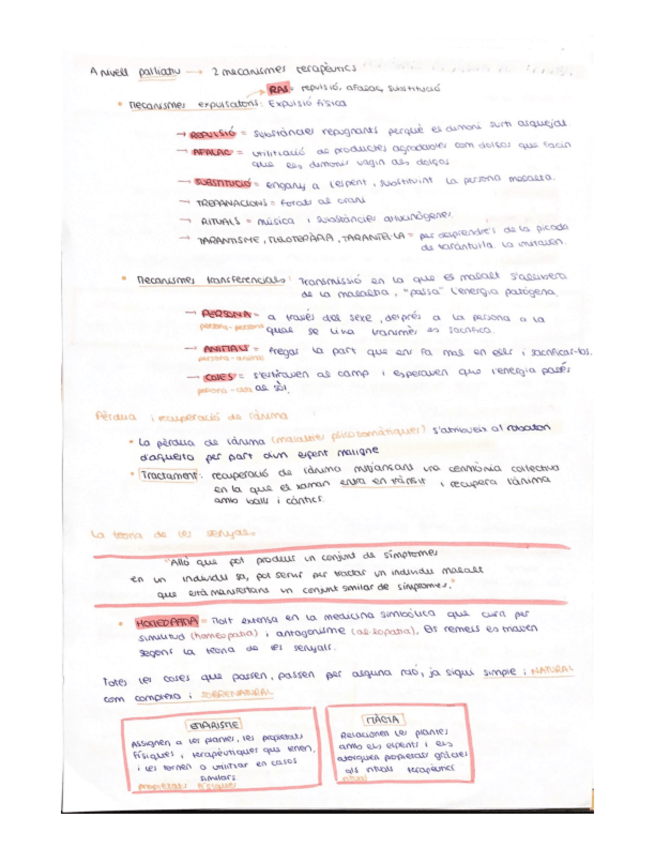 A nivell pal·liatiu → 2 mecanismes terapèutics
RAS = repulsió, afalac, substitució
• Mecanismes expulsatoris: Expulsió física
→ REPULSIÓ = substàncies repugnants perquè el dimoni surti asquejat.
→ AFALAC = utilització de productes agradables com dolços que facin
que els dimonis vagin als dolços
→ SUBSTITUCIÓ = engany a l'esperit, substituint la persona malalta.
→ TREPANACIONS = forats al crani
→ RITUALS = música i substàncies al·lucinògenes.
→ TARANTISME, MELOTERÀPIA, TARANTEL·LA = per desprendre's de la picada
de taràntul·la. La imitaven.
• Mecanismes transferencials: Transmissió en la que el malalt s'allibera
de la malaltia, "passa" l'energia patògena.
→ PERSONA = a través del sexe, després a la persona a la
persona - persona qual se li ha transmès es sacrifica.
→ ANIMALS = fregar la part que em fa mal en ells i sacrificar-los.
persona - animal
→ COSES = s'estiraven al camp i esperaven que l'energia passés
persona - cosa al sòl.
Pèrdua i recuperació de l'ànima
• La pèrdua de l'ànima (malalties psicosomàtiques) s'atribueix al robatori
d'aquesta per part d'un esperit maligne
• Tractament: recuperació de l'ànima mitjançant una cerimònia col·lectiva
en la que el xaman entra en trànsit i recupera l'ànima
amb balls i càntics.
La teoria de les senyals.
"Allò que pot produir un conjunt de símptomes
en un individu sa, pot servir per tractar un individu malalt
que està manifestant un conjunt similar de símptomes."
• HOMEOPATIA = Molt extensa en la medicina simbòlica que cura per
similitud (homeopatia) i antagonisme (al·lopatia). Els remeis es
segons la teoria de les senyals.
Totes les coses que passen, passen per alguna raó, ja sigui simple i NATURAL
com complexa i SOBRENATURAL
EMPIRISME
Assignen a les plantes, les propietats
físiques i terapèutiques que tenen,
i les tornen a utilitzar en casos
similars
propietats físiques
MÀGIA
Relacionen les plantes
amb els esperits i els
atorguen propietats gràcies
als rituals terapèutics
ritual